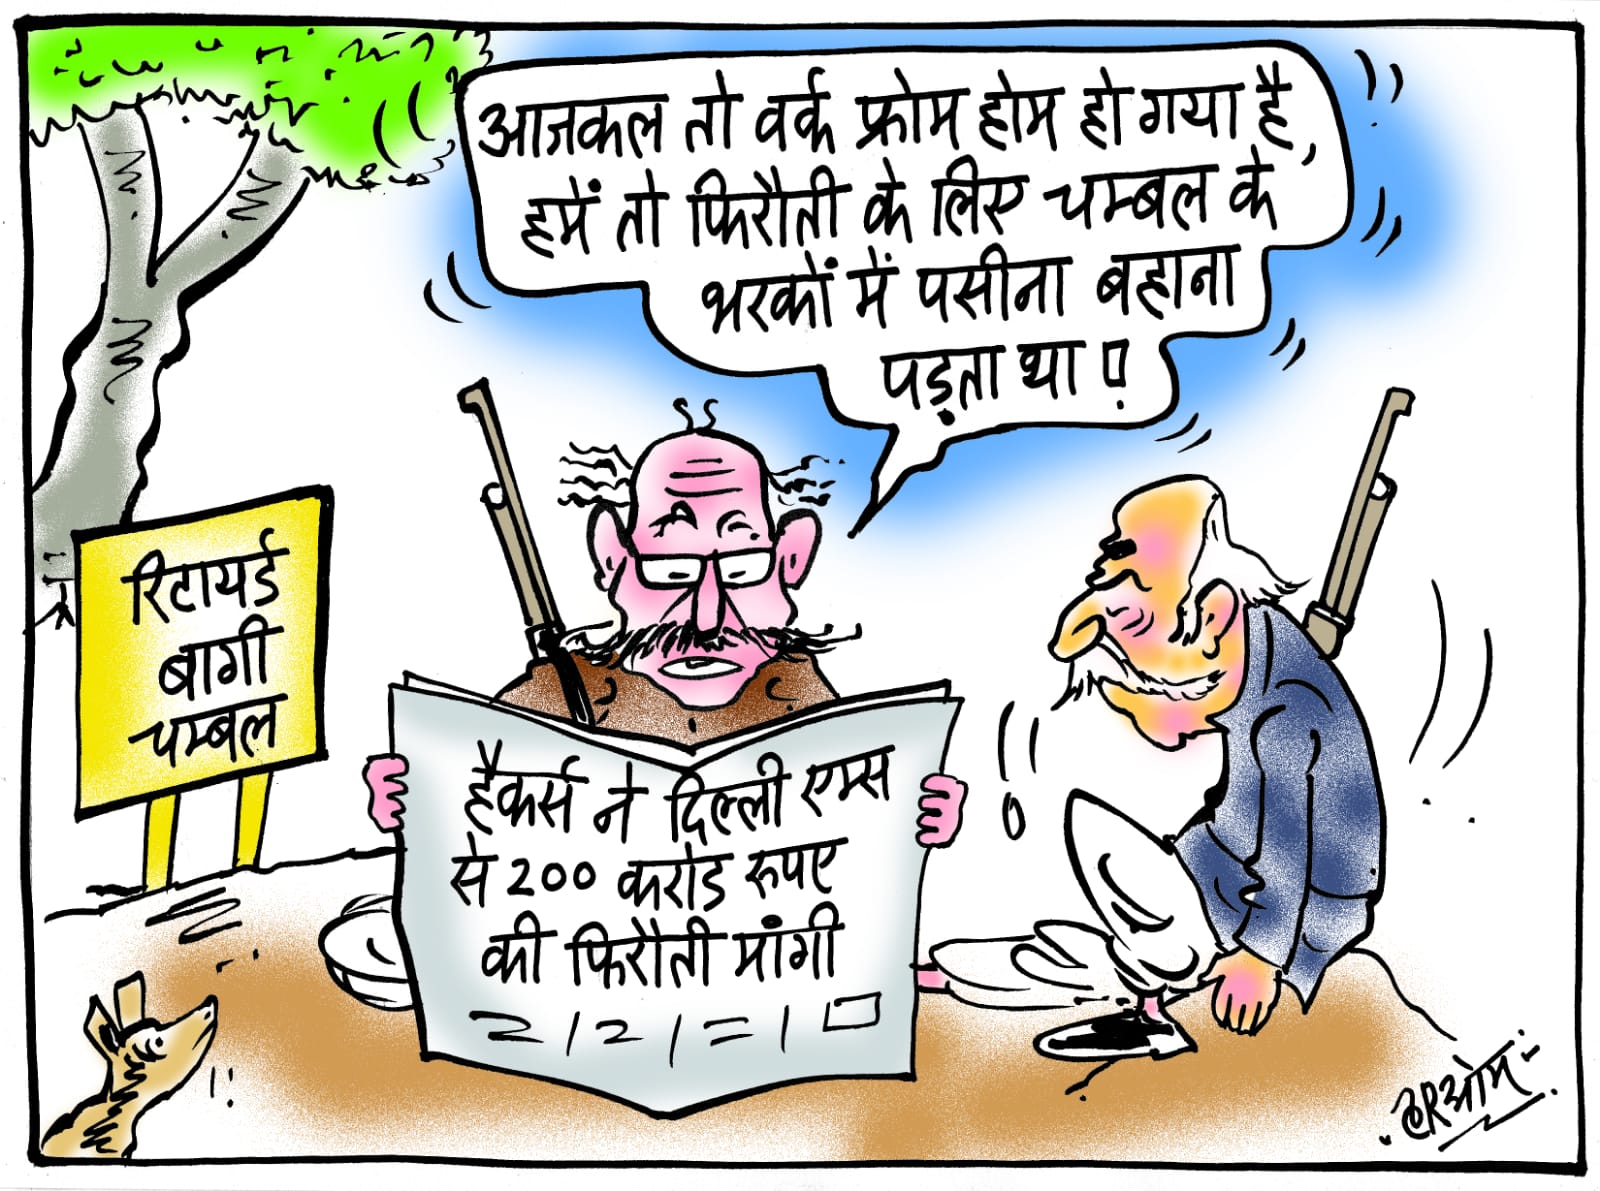 आजकल तो वर्क फ्रोम होम हो गया है,
हमें तो फिरौती के लिए चम्बल के
भरकों में पसीना बहाना
पड़ता था !
रिटायर्ड
बागी
चम्बल
हैकर्स ने दिल्ली एम्स
से 200 करोड रुपए
की फिरौती मांगी